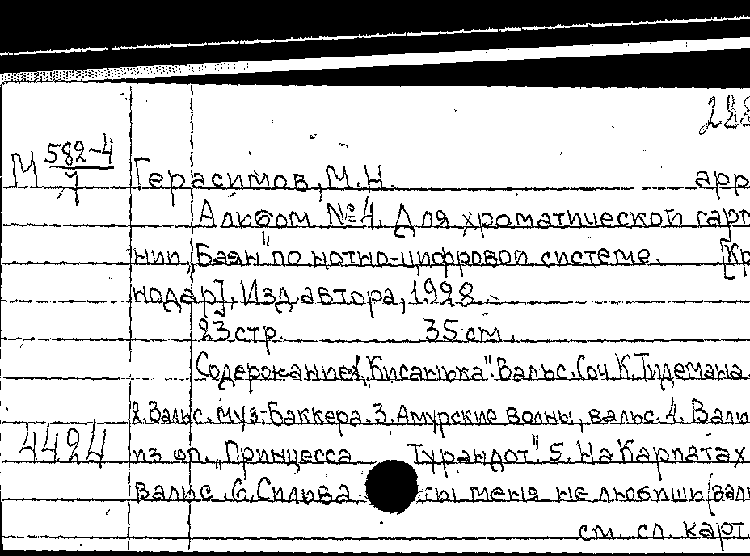 288
М 582-4
1
Герасимов, М.Н. арр
Альбом №4. Для хроматической гарм
нии „Баян" по нотно-цифровой системе. [Кр
нодар], Изд. автора, 1928.
23 стр. 35 см.
Содержание: 1. „Кисанька". Вальс. Соч. К. Тидемана.
2. Вальс. муз. Баккера. 3. Амурские волны, вальс. 4. Валь
4424 из оп. „Принцесса Турандот". 5. На Карпатах
вальс. 6. Сильва ты меня не любишь (валь
см. сл. карт